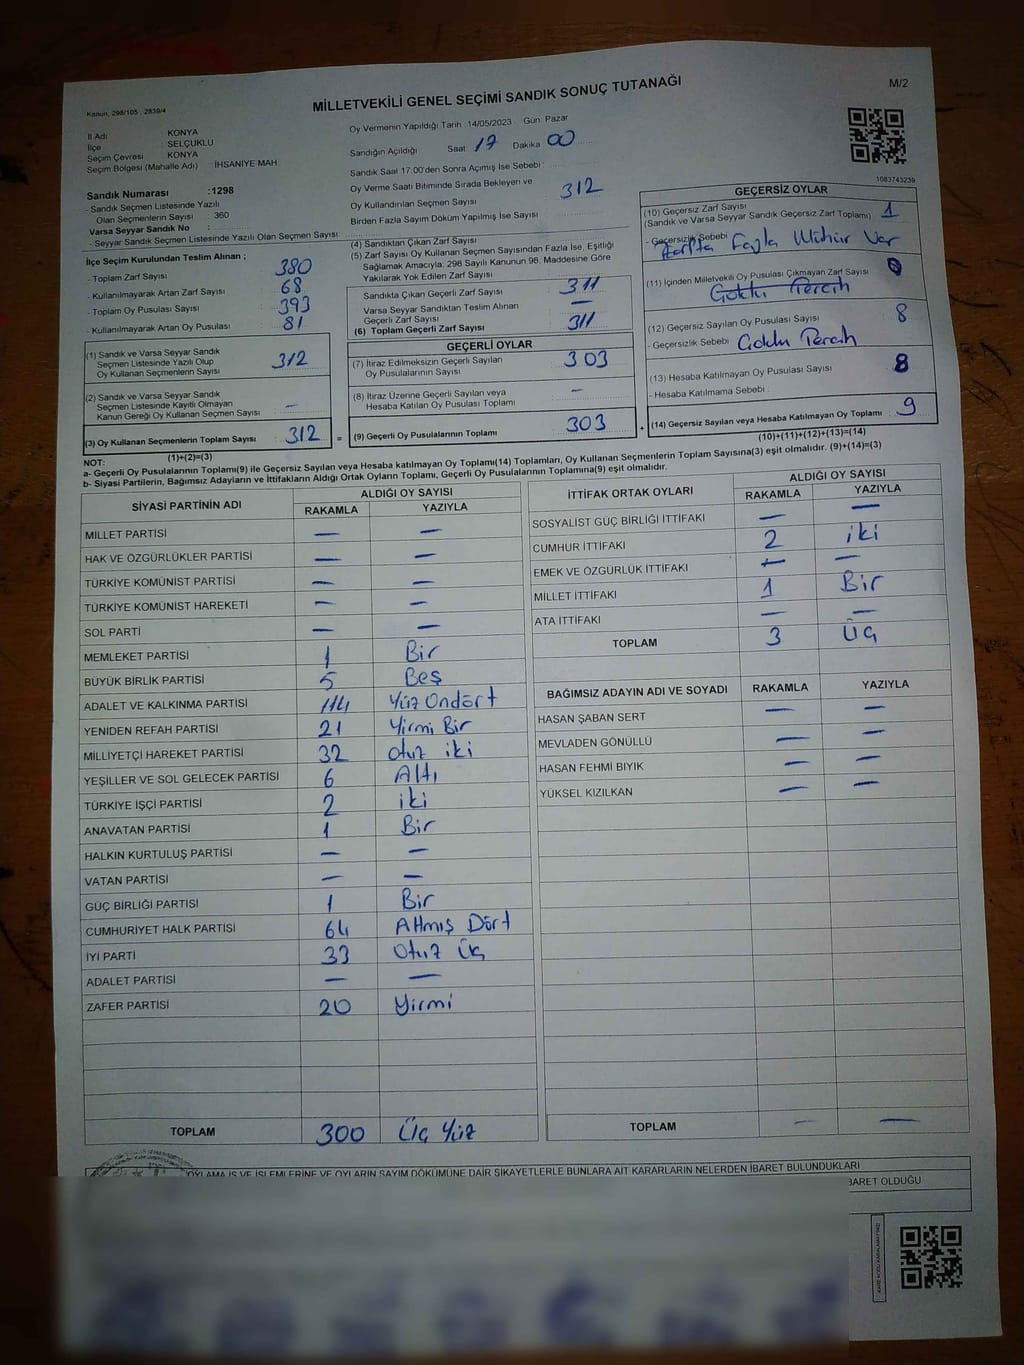 Kanun: 298/105 , 2839/4
MİLLETVEKİLİ GENEL SEÇİMİ SANDIK SONUÇ TUTANAĞI
M/2
İl Adı KONYA
İlçe SELÇUKLU
Seçim Çevresi KONYA
Seçim Bölgesi (Mahalle Adı) İHSANİYE MAH.
Sandık Numarası :1298
- Sandık Seçmen Listesinde Yazılı
Olan Seçmenlerin Sayısı 360
Varsa Seyyar Sandık No :
- Seyyar Sandık Seçmen Listesinde Yazılı Olan Seçmen Sayısı:
Oy Vermenin Yapıldığı Tarih 14/05/2023 Gün Pazar
Sandığın Açıldığı Saat 17 Dakika 00
Sandık Saat 17:00'den Sonra Açımış İse Sebebi :
Oy Verme Saati Bitiminde Sırada Bekleyen ve
Oy Kullandırılan Seçmen Sayısı 312
Birden Fazla Sayım Döküm Yapılmış İse Sayısı
1083743239
İlçe Seçim Kurulundan Teslim Alınan ;
- Toplam Zarf Sayısı 380
- Kullanılmayarak Artan Zarf Sayısı 68
- Toplam Oy Pusulası Sayısı 393
- Kullanılmayarak Artan Oy Pusulası 81
(1) Sandık ve Varsa Seyyar Sandık
Seçmen Listesinde Yazılı Olup
Oy Kullanan Seçmenlerin Sayısı 312
(2) Sandık ve Varsa Seyyar Sandık
Seçmen Listesinde Kayıtlı Olmayan
Kanun Gereği Oy Kullanan Seçmen Sayısı —
(3) Oy Kullanan Seçmenlerin Toplam Sayısı 312 =
(1)+(2)=(3)
(4) Sandıktan Çıkan Zarf Sayısı
(5) Zarf Sayısı Oy Kullanan Seçmen Sayısından Fazla İse, Eşitliği
Sağlamak Amacıyla; 298 Sayılı Kanunun 98. Maddesine Göre
Yakılarak Yok Edilen Zarf Sayısı
Sandıkta Çıkan Geçerli Zarf Sayısı 311
Varsa Seyyar Sandıktan Teslim Alınan
Geçerli Zarf Sayısı —
(6) Toplam Geçerli Zarf Sayısı 311
GEÇERLİ OYLAR
(7) İtiraz Edilmeksizin Geçerli Sayılan
Oy Pusulalarının Sayısı 303
(8) İtiraz Üzerine Geçerli Sayılan veya
Hesaba Katılan Oy Pusulası Toplamı —
(9) Geçerli Oy Pusulalarının Toplamı 303 +
GEÇERSİZ OYLAR
(10) Geçersiz Zarf Sayısı 1
(Sandık ve Varsa Seyyar Sandık Geçersiz Zarf Toplamı)
- Geçersizlik Sebebi Zarfta Fazla Mühür Var
(11) İçinden Milletvekili Oy Pusulası Çıkmayan Zarf Sayısı 0
(12) Geçersiz Sayılan Oy Pusulası Sayısı 8
- Geçersizlik Sebebi Çoklu Tercih
(13) Hesaba Katılmayan Oy Pusulası Sayısı 8
- Hesaba Katılmama Sebebi :
(14) Geçersiz Sayılan veya Hesaba Katılmayan Oy Toplamı 9
(10)+(11)+(12)+(13)=(14)
NOT:
a- Geçerli Oy Pusulalarının Toplamı(9) ile Geçersiz Sayılan veya Hesaba katılmayan Oy Toplamı(14) Toplamları, Oy Kullanan Seçmenlerin Toplam Sayısına(3) eşit olmalıdır. (9)+(14)=(3)
b- Siyasi Partilerin, Bağımsız Adayların ve İttifakların Aldığı Ortak Oyların Toplamı, Geçerli Oy Pusulalarının Toplamına(9) eşit olmalıdır.
SİYASİ PARTİNİN ADI ALDIĞI OY SAYISI
RAKAMLA YAZIYLA
MİLLET PARTİSİ — —
HAK VE ÖZGÜRLÜKLER PARTİSİ — —
TÜRKİYE KOMÜNİST PARTİSİ — —
TÜRKİYE KOMÜNİST HAREKETİ — —
SOL PARTİ — —
MEMLEKET PARTİSİ 1 Bir
BÜYÜK BİRLİK PARTİSİ 5 Beş
ADALET VE KALKINMA PARTİSİ 114 Yüz Ondört
YENİDEN REFAH PARTİSİ 21 Yirmi Bir
MİLLİYETÇİ HAREKET PARTİSİ 32 Otuz iki
YEŞİLLER VE SOL GELECEK PARTİSİ 6 Altı
TÜRKİYE İŞÇİ PARTİSİ 2 iki
ANAVATAN PARTİSİ 1 Bir
HALKIN KURTULUŞ PARTİSİ — —
VATAN PARTİSİ — —
GÜÇ BİRLİĞİ PARTİSİ 1 Bir
CUMHURİYET HALK PARTİSİ 64 Altmış Dört
İYİ PARTİ 33 Otuz Üç
ADALET PARTİSİ — —
ZAFER PARTİSİ 20 Yirmi
TOPLAM 300 Üç Yüz
İTTİFAK ORTAK OYLARI ALDIĞI OY SAYISI
RAKAMLA YAZIYLA
SOSYALİST GÜÇ BİRLİĞİ İTTİFAKI — —
CUMHUR İTTİFAKI 2 iki
EMEK VE ÖZGÜRLÜK İTTİFAKI — —
MİLLET İTTİFAKI 1 Bir
ATA İTTİFAKI — —
TOPLAM 3 Üç
BAĞIMSIZ ADAYIN ADI VE SOYADI RAKAMLA YAZIYLA
HASAN ŞABAN SERT — —
MEVLADEN GÖNÜLLÜ — —
HASAN FEHMİ BIYIK — —
YÜKSEL KIZILKAN — —
TOPLAM — —
OYLAMA İŞ VE İŞLEMLERİNE VE OYLARIN SAYIM DÖKÜMÜNE DAİR ŞİKAYETLERLE BUNLARA AİT KARARLARIN NELERDEN İBARET BULUNDUKLARI
BARET OLDUĞU